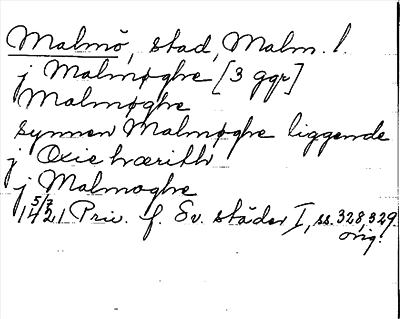 Malmö, stad, Malm. l.
j Malmøghe [3 ggr]
Malmøghe
synnen Malmøghe liggende
j Oxie hærith
j Malmoghe
5/7
1421 Priv. f. Sv. städer I, ss. 328, 329
orig.